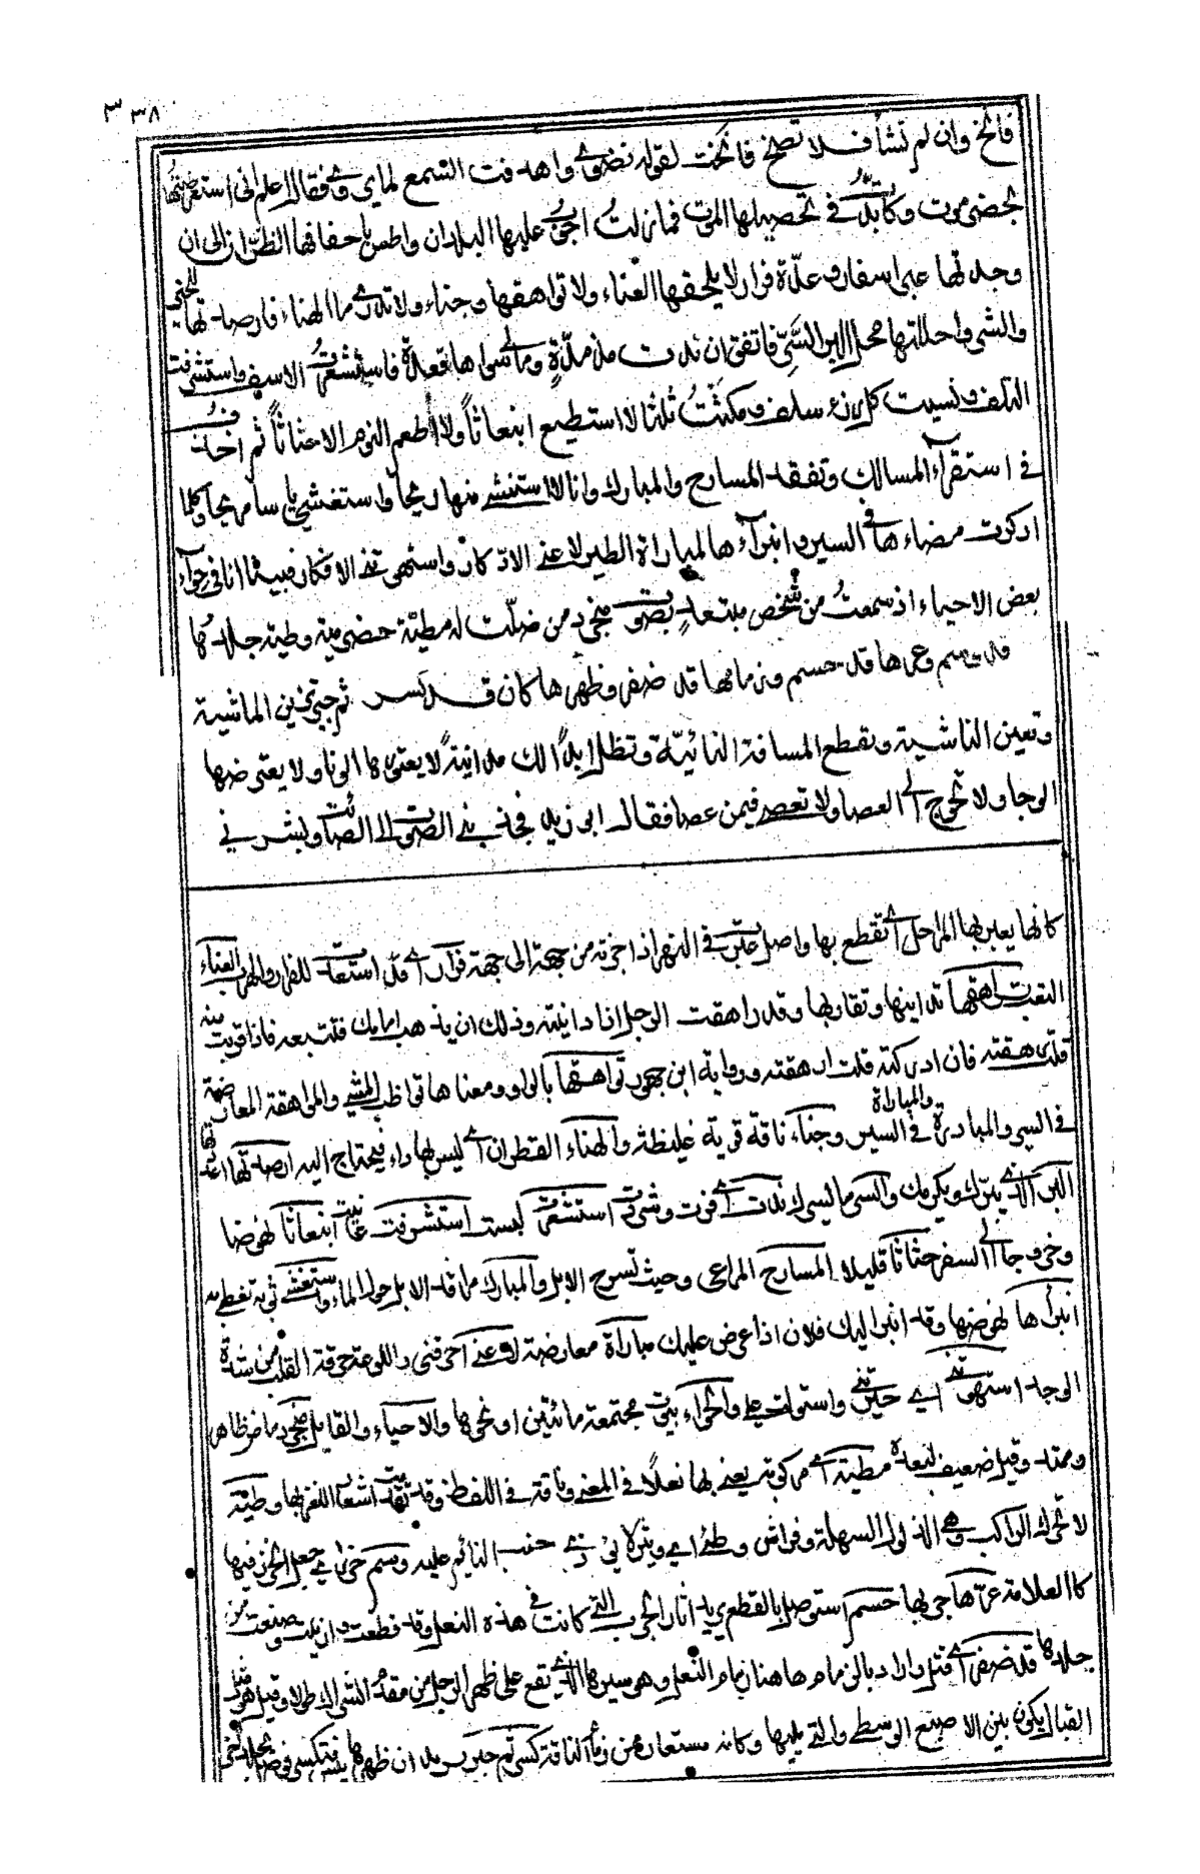 ٣٣٨
فانخ وان لم تشأ فلا تصخ فانخت لقوله نضوى واهدفت السمع لما يروى فقال اعلم انى استعرضتها
بحضرموت وكابدت فى تحصيلها الموت فما زلت اجوب عليها البلدان واطس باخفافها الظران الى ان
وجدتها عبر اسفار وعدة قرار لا يلحقها العناء ولا تواهقها وجناء ولا تدرى ما الهناء فارصدتها للخير
والشر واحللتها محل البر السرى فاتفق ان ندت مذ مدة ومالى سواها قعدة فاستشعرت الاسف واستشرفت
التلف ونسيت كل رزء سلف ومكثت ثلثا لا استطيع انبعاثا ولا اطعم النوم الا حثاثا ثم اخذت
فى استقراء المسالك وتفقد المسارح والمبارك وانا لا استنشى منها ريحا ولا استغشى ياسا مريحا وكلما
ادكرت مضاءها فى السير وانبراءها لمباراة الطير لاعنى الادكار واستهوتنى الافكار فبينما انا فى حواء
بعض الاحياء اذ سمعت من شخص مبتعد بصوت متجرد من ضلت له مطية حضرمية وطية جلدها
قد وسم وعرها قد حسم وزمامها قد ضفر وظهرها كان قد كسر ثم جبر تزين الماشية
وتعين الناشية وتقطع المسافة النائية وتظل ابدا لك مدانية لا يعتورها الونا ولا يعترضها
الوجا ولا تحوج الى العصا ولا تعصى فيمن عصا فقال ابو زيد فجذبنى الصوت الى الصائت وبشرنى
كانها يعبر بها المراحل اى تقطع بها واصل عبرت فى النهر اذا جزته من جهة الى جهة قرار اى قد استعدت للفرار والهرب العناء
التعب تراهقها تدانيها وتقاربها وقد راهقت الرجل اذا دانيته وذلك ان يذهب امامك فتتبعه فاذا قربت منه
قلت رهقته فان ادركته قلت ارهقته ورواية ابن جهور تواهقها بالواو ومعناها تواظب المشى والمواهقة المعارضة
فى السير والمبادرة والمباراة فى السير وجناء ناقة قوية غليظة والهناء القطران اى ليس بها داء فيحتاج اليه ارصدتها اعددتها
البر الذى يبرك ويكرمك والسرى ما يسرك ندت اى فرت وشردت استشعرت لبست استشرفت عاينت انبعاثا نهوضا
وخروجا الى السفر حثاثا قليلا المسارح المراعى وحيث تسرح الابل والمبارك مراقد الابل حول الماء واستغشى ثوبه تغطى به
انبراها نهوضها وقد انبرا اليك فلان اذا عرض عليك مباراة معارضة لاعنى احرقنى واللوعة حرقة القلب من شدة
الوجد استهوتنى اى حيرتنى واستولت على والحواء بيوت مجتمعة مائتين او نحوها والاحياء والقبايل متجرد ماض ظاهر
وممتد وقيل ضعيف لبعده مطية اى مركوبة يعنى بها نعلا فى المعنى وناقة فى اللفظ وقد تقدمت اشعار اللغز بها وطية
لا تحرك الراكب وهى الذلول السهلة وفراش وطئ اى وثير لا يؤذى جنب النائم عليه وسم خرز اى جعل الخرز فيها
كالعلامة عرها جربها حسم استوصل بالقطع يريد اثار الجرب التى كانت فى هذه النعل وقد قطعت وازيلت وصنعت من
جلدها قد ضفر اى فتل واراد بالزمام هاهنا زمام النعل وهو سيرها الذى يقع على ظهر الرجل من مقدم الشراك طولا وقيل هو مثل
القبال يكون بين الاصبع الوسطى والتى يليها وكانه مستعار من زمام الناقة كسر ثم جبر يريد ان ظهرها